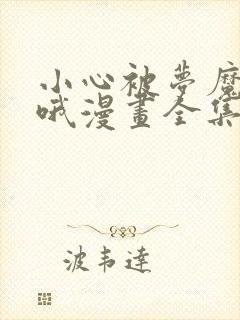 小心被夢魔
哦漫畫全集
波韦達